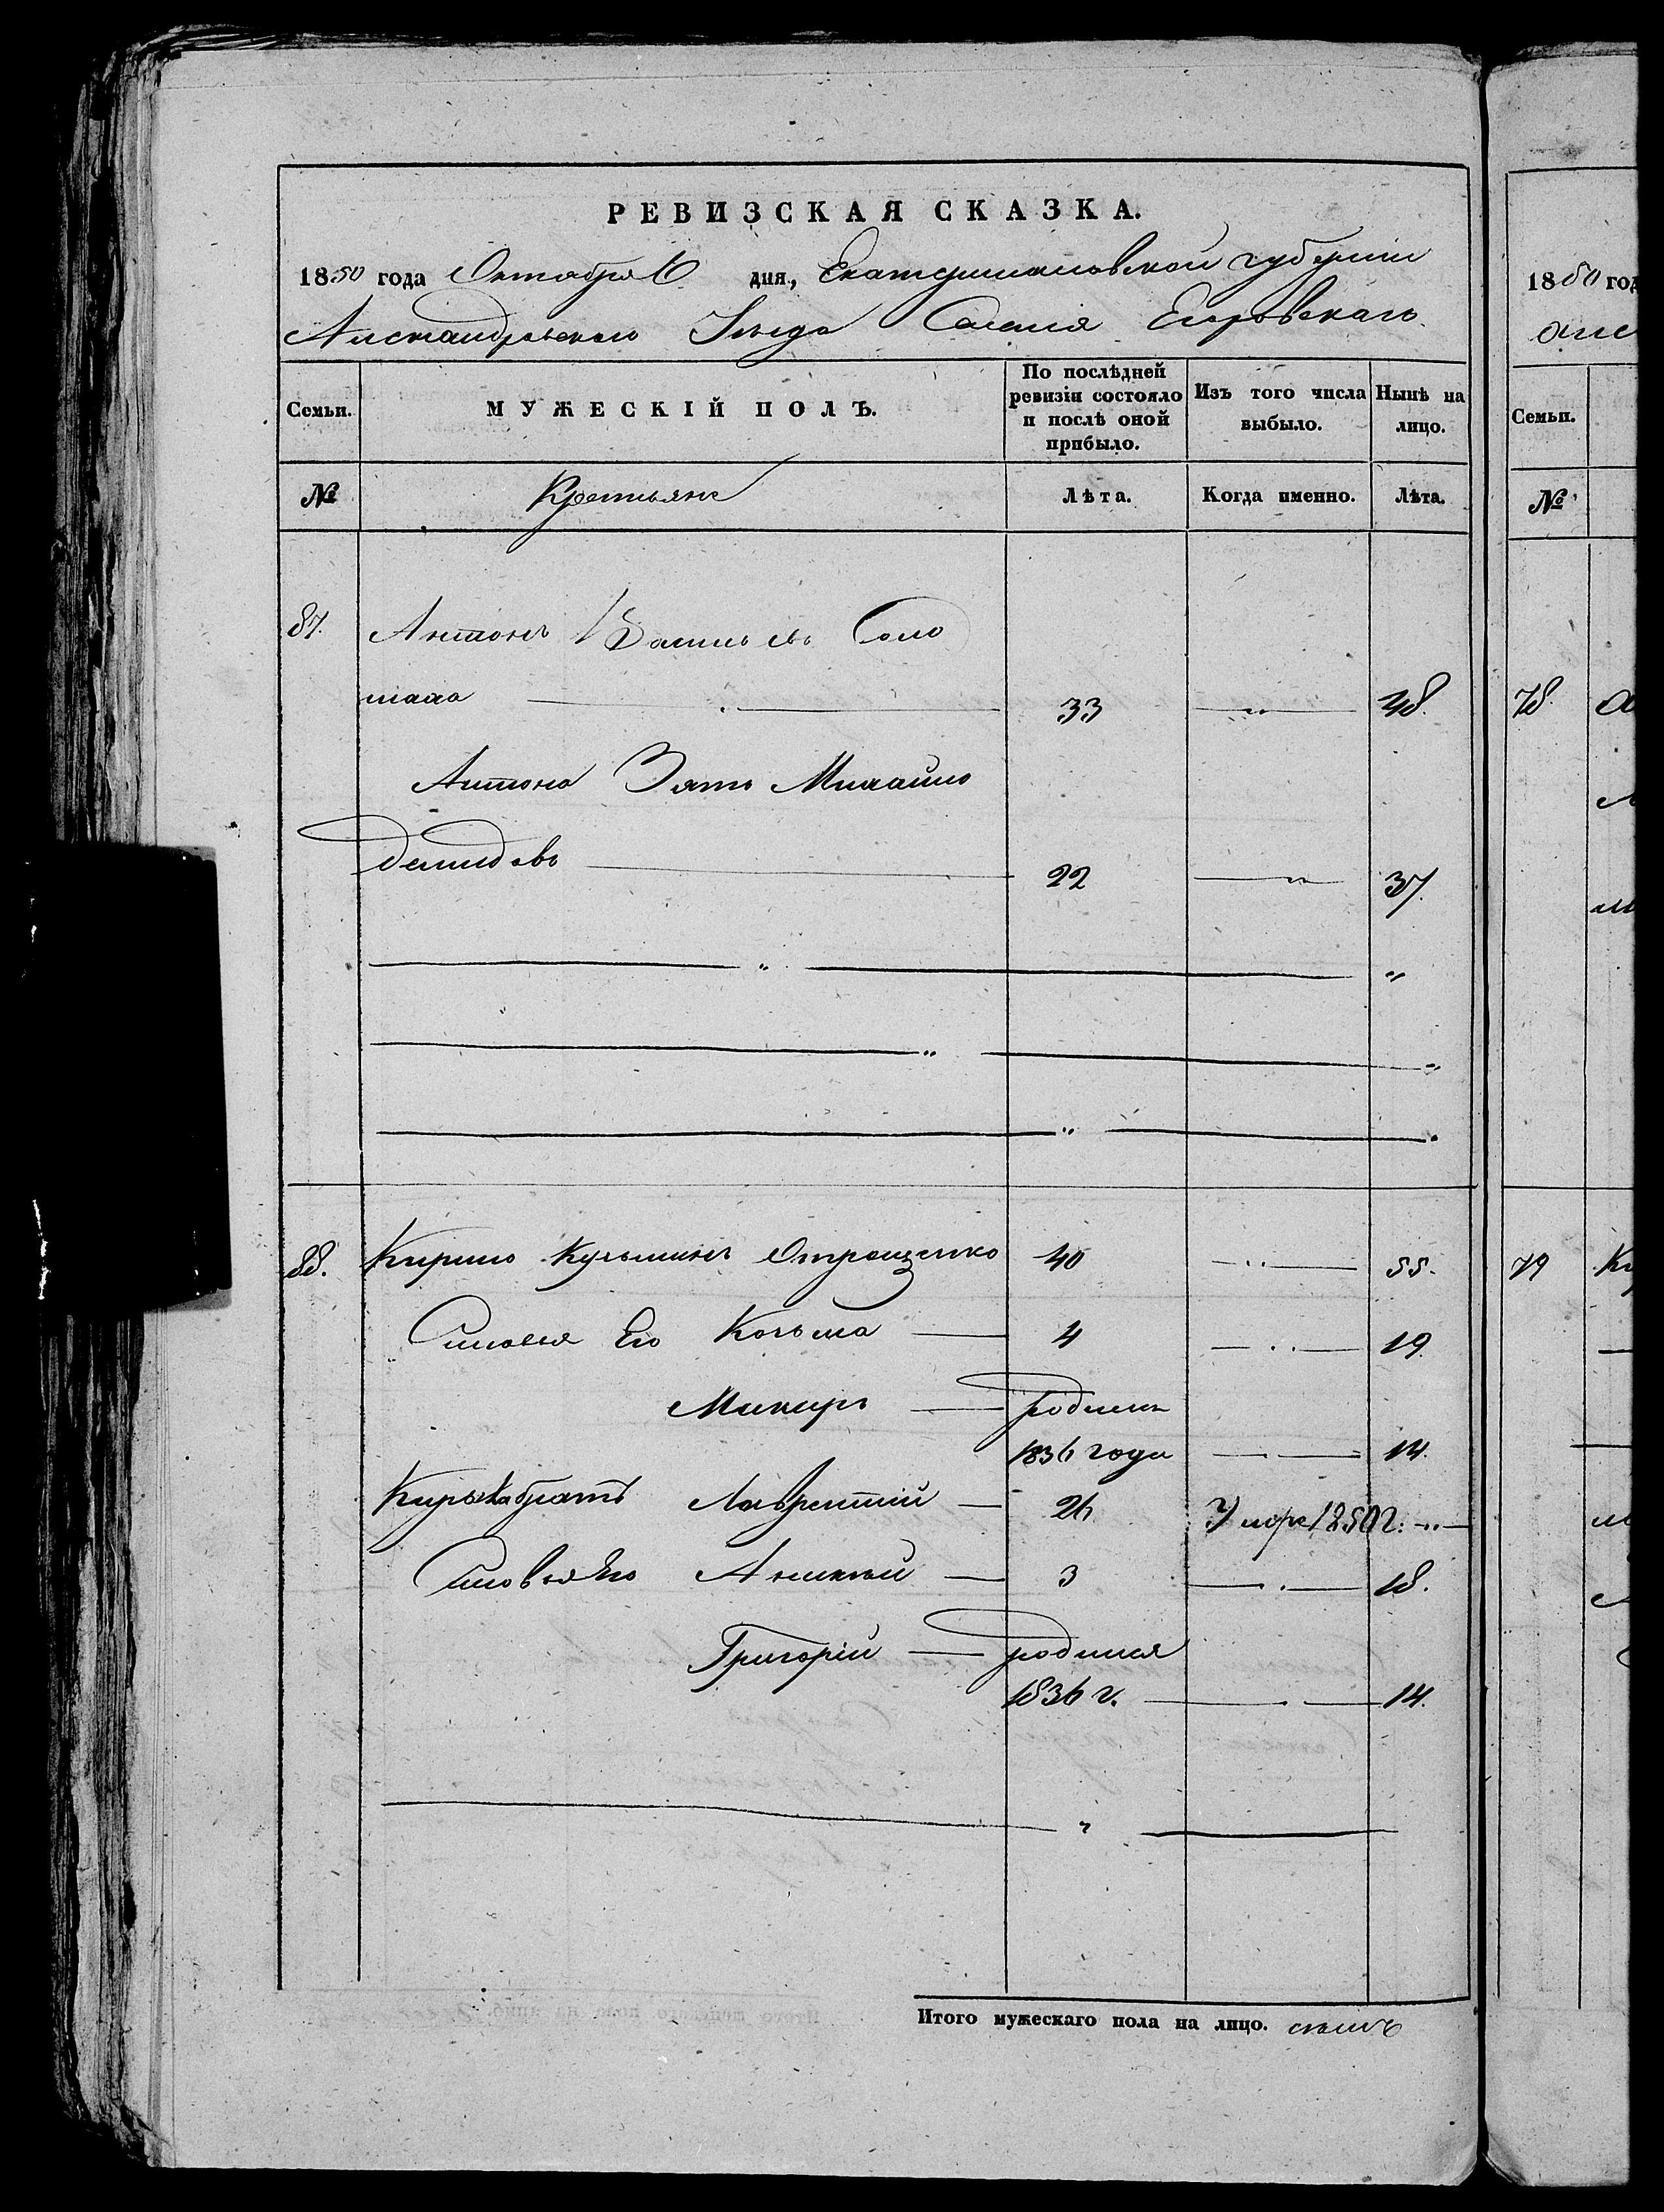 РЕВИЗСКАЯ СКАЗКА.
1850 года Октября 6 дня, Екатеринославской губернии
Александровского Уезда Селения Егоровскаго
Семьи. МУЖЕСКІЙ ПОЛЪ. По послѣдней ревизіи состояло и послѣ оной прибыло. Изъ того числа выбыло. Нынѣ на лицо.
№ Крестьяне Лѣта. Когда именно. Лѣта.
87. Антонъ Васильевъ Соло
маха 33 48.
Антона Зять Михайло
Демидовъ 22 37.
88. Кирило Кузьминъ Отрощенко 40 55.
Сыновья Его Козьма 4 19.
родился
1836 года 14.
Кирила братъ Лаврентий 26 Умре 1850 г.
Сыновья Его 3 18.
Григорій родился
1836 г. 14.
Итого мужескаго пола на лицо. семь
1850 год
Семьи.
№
78.
79